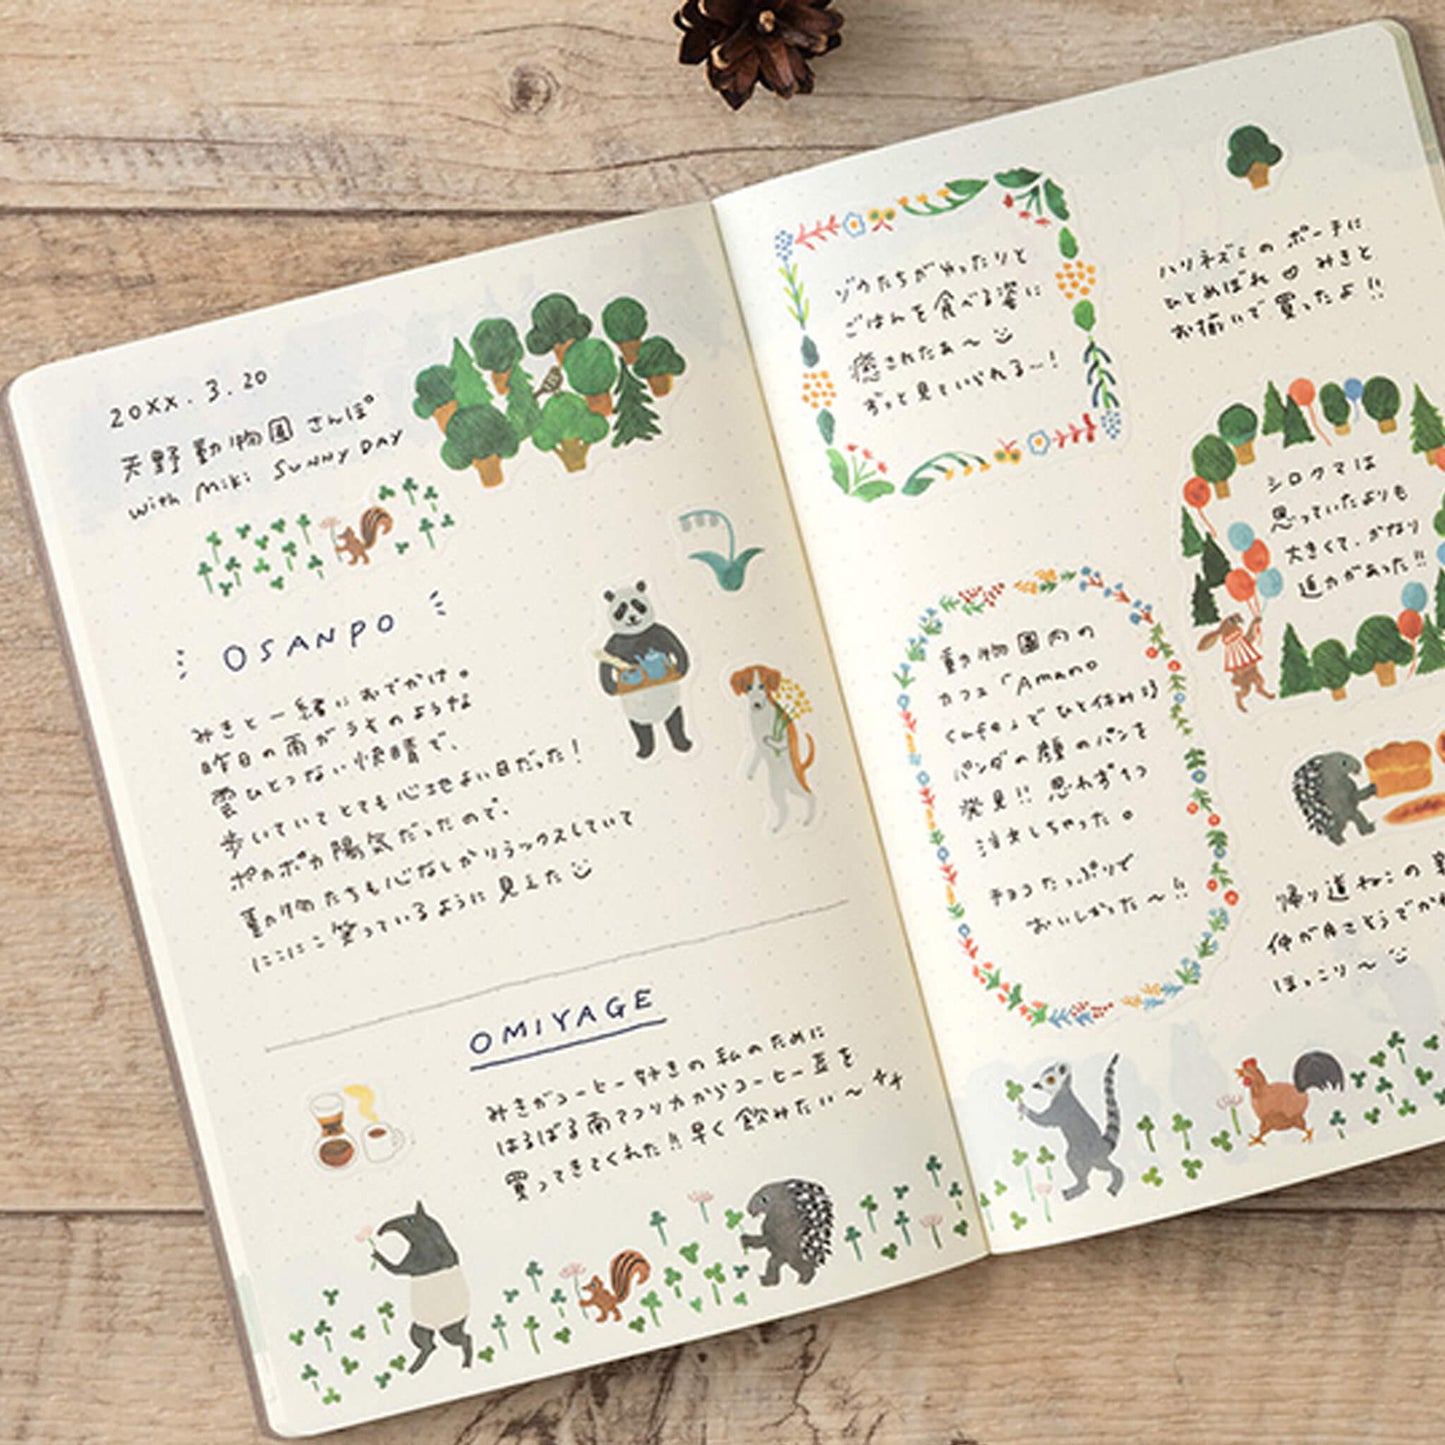 20XX.3.20
天野動物園さんぽ
with Miki SUNNY DAY
OSANPO
みきと一緒におでかけ。
昨日の雨がうそのような
雲ひとつない快晴で、
歩いていてとても心地よい日だった!
ポカポカ陽気だったので、
動物たちも心なしかリラックスしていて
にこにこ笑っているように見えた
OMIYAGE
みきがコーヒー好きの私のために
はるばる南アフリカからコーヒー豆を
買ってきてくれた!!早く飲みたい〜
ゾウたちがゆったりと
ごはんを食べる姿に
癒されたぁ〜
ずっと見ていられる〜!
ハリネズミのポーチに
ひとめぼれ♡みきと
お揃いで買ったよ!!
シロクマは
思っていたよりも
大きくて、かなり
迫力があった!!
動物園内の
カフェ「Amano
cafe」でひと休み
パンダの顔のパンを
発見!!思わず
注文しちゃった。
チョコたっぷりで
おいしかった〜!!
帰り道ねこの
仲が良さそうで
ほっこり〜